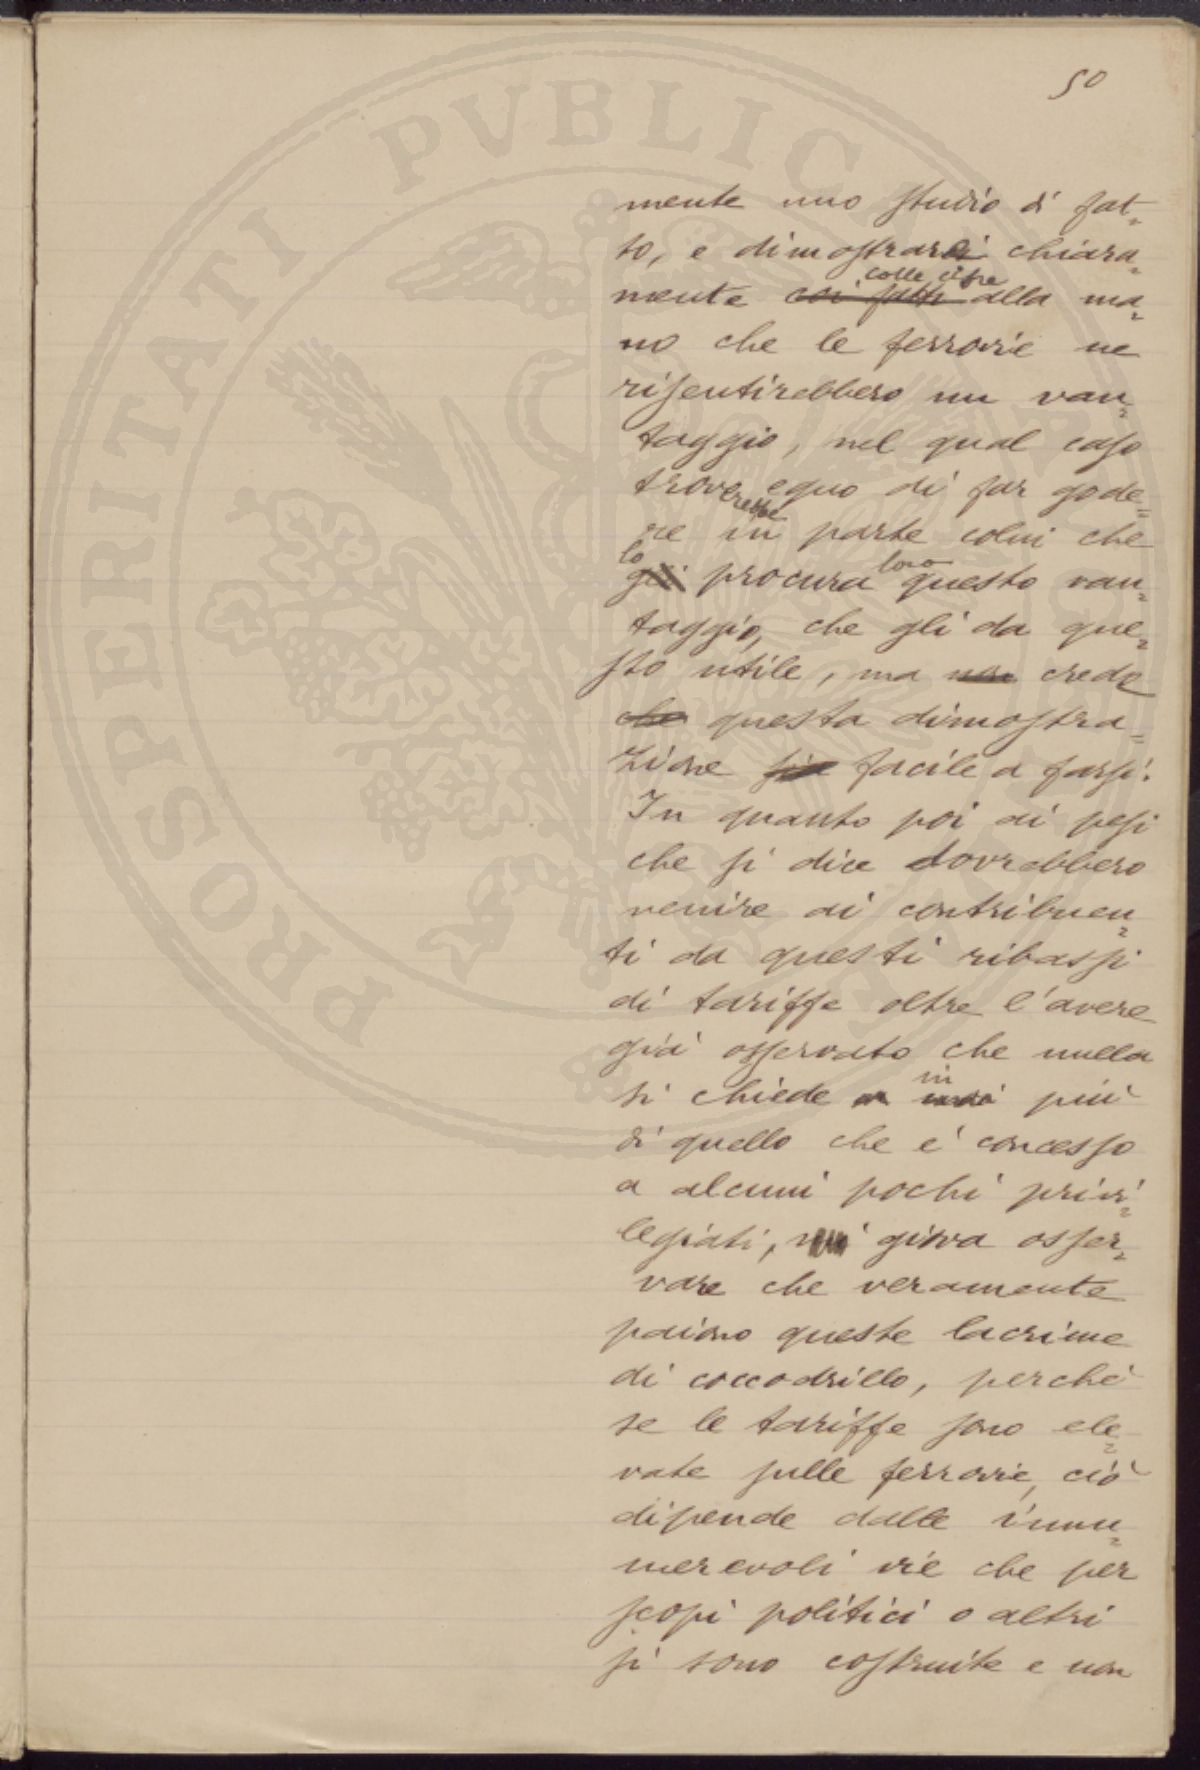 50
mente uno studio di fat=
to, e dimostrarsi chiara=
mente coi fatti colle cifre alla ma=
no che le ferrovie ne
risentirebbero un van=
taggio, nel qual caso
troverebbe equo di far gode=
re in parte colui che
gli lo procura loro questo van=
taggio, che gli da que=
sto utile, ma non crede
che questa dimostra=
zione sia facile a farsi.
In quanto poi ai pesi
che si dice dovrebbero
venire ai contribuen=
ti da questi ribassi
di tariffe oltre l'avere
già osservato che nulla
si chiede in più
di quello che è concesso
a alcuni pochi privi=
legiati, giova osser=
vare che veramente
paiono queste lacrime
di coccodrillo, perchè
se le tariffe sono ele=
vate sulle ferrovie, ciò
dipende dalle innu=
merevoli vie che per
scopi politici o altri
si sono costruite e non
PROSPERITATI PUBLICAE